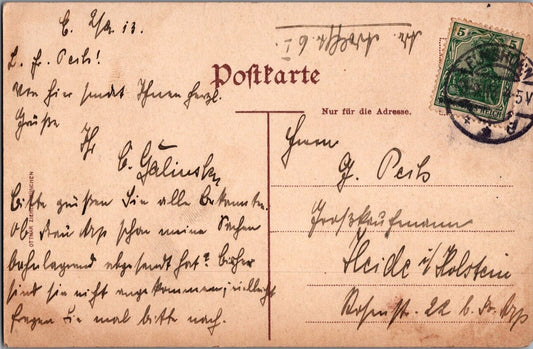 E. 2/9. 13.
L. Hr. Peils!
Von hier sendet Ihnen herzl.
Grüße
Ihr
E. Galinsky
Bitte grüßen Sie alle Bekannten.
Ob Frau Arp schon meine Sachen
bahnlagernd abgesandt hat? bisher
sind sie nicht angekommen, vielleicht
fragen Sie mal bitte nach.
Postkarte
Nur für die Adresse.
Herrn
Großkaufmann
Heide i/Holstein
Rosenstr. 22 b. Fr. Arp
5
5
REICH
OTTMAR ZIEHER, MÜNCHEN